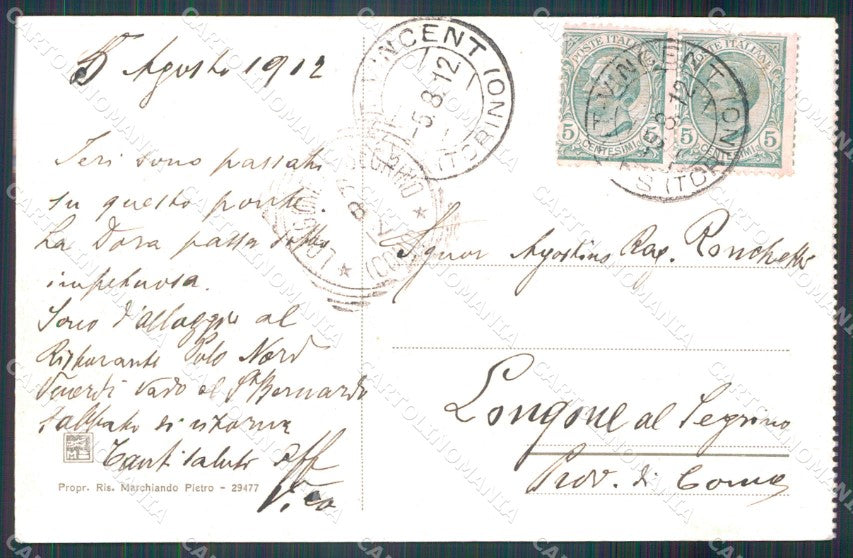 5 Agosto 1912
Ieri sono passato
su questo ponte.
La Dora passa sotto
impetuosa.
Sono d'alloggio al
Ristorante Polo Nord
Venerdi vado al S. Bernardo
sabbato di ritorno
Tanti saluti aff
Propr. Ris. Marchiando Pietro - 29477
VINCENT
-5.8.12
(TORINO)
POSTE ITALIANE
5 CENTESIMI 5
POSTE ITALIANE
5 CENTESIMI 5
VINCENT
-5.8.12
(TORINO)
LONGONE AL SEGRINO
(COMO)
Signor Agostino Rag. Ronchetti
Longone al Segrino
Prov. di Como
CARTOLINOMANIA